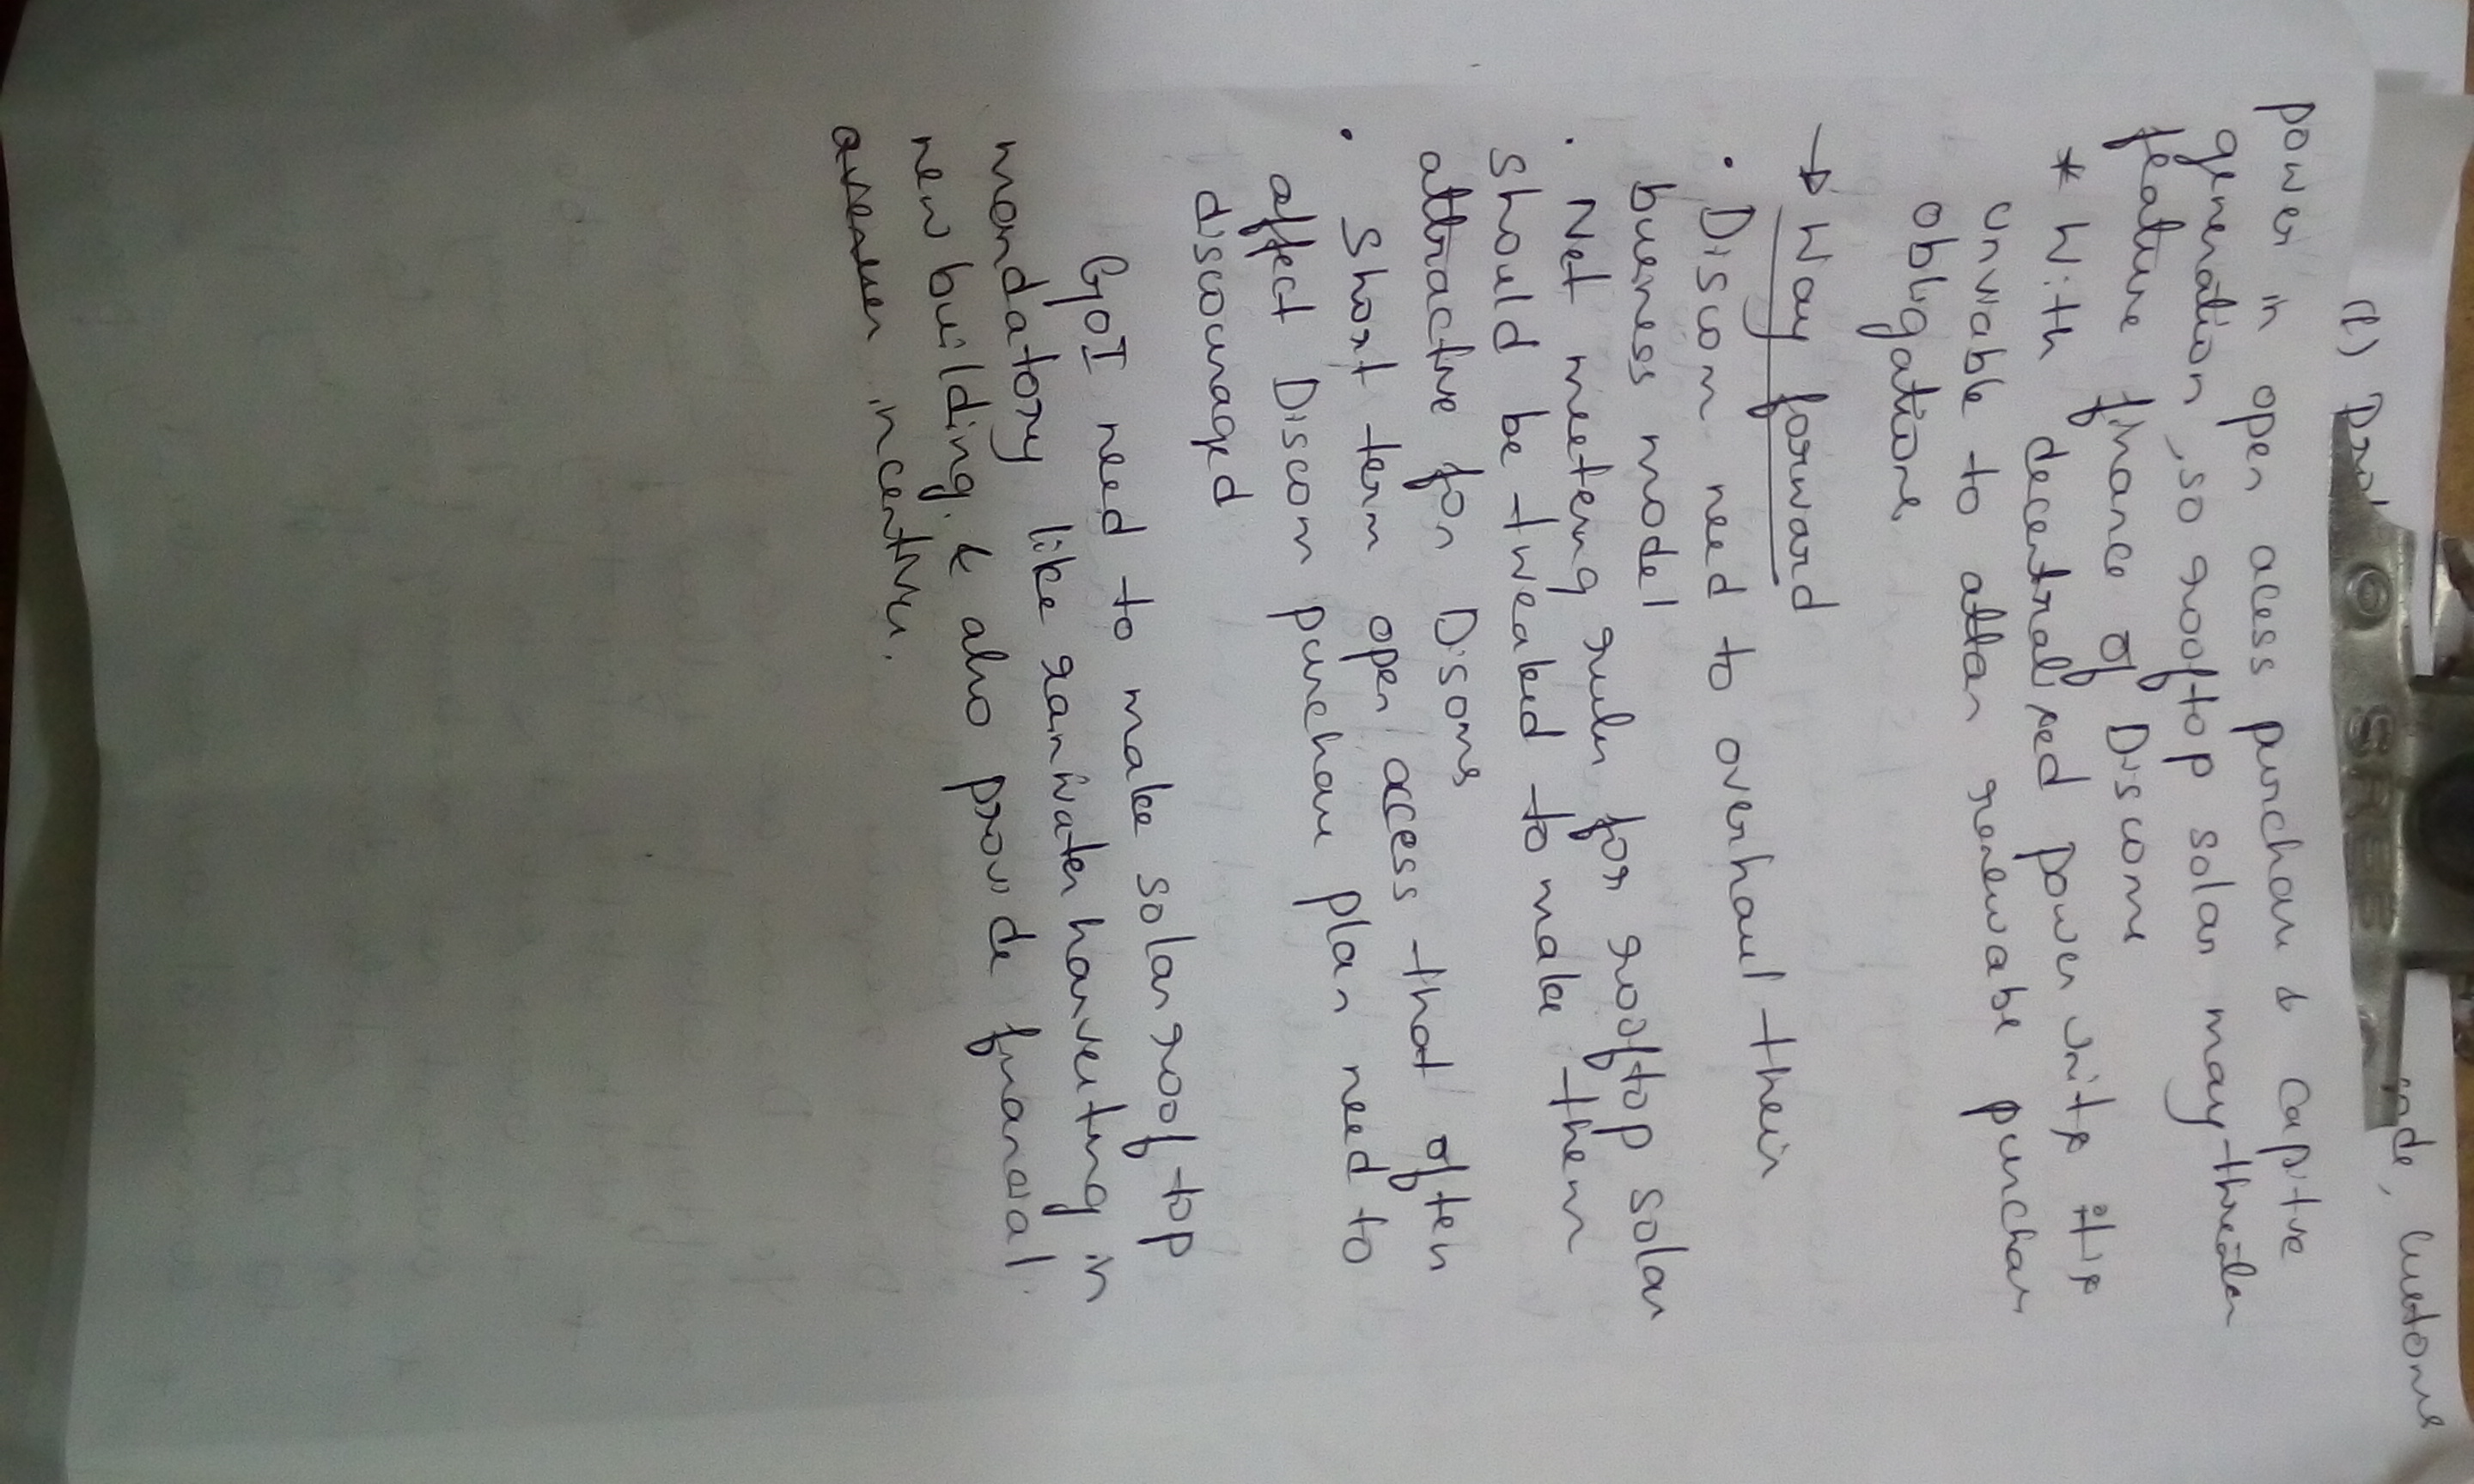 ade, Customs
power in open acess purchase & captive
generation, so rooftop solar may threaten
feature finance of Discoms
* With decentralised power units it is
unviable to attain renewable purchase
obligations
→ Way forward
• Discom need to overhaul their
buisness model
• Net metering rules for rooftop solar
should be tweaked to make them
attractive for Discoms
• Short term open access that often
affect Discom purchase plan need to
discouraged
GoI need to make solar roof top
mandatory like rainwater harvesting in
new building. & also provide financial
incentives.
SREE